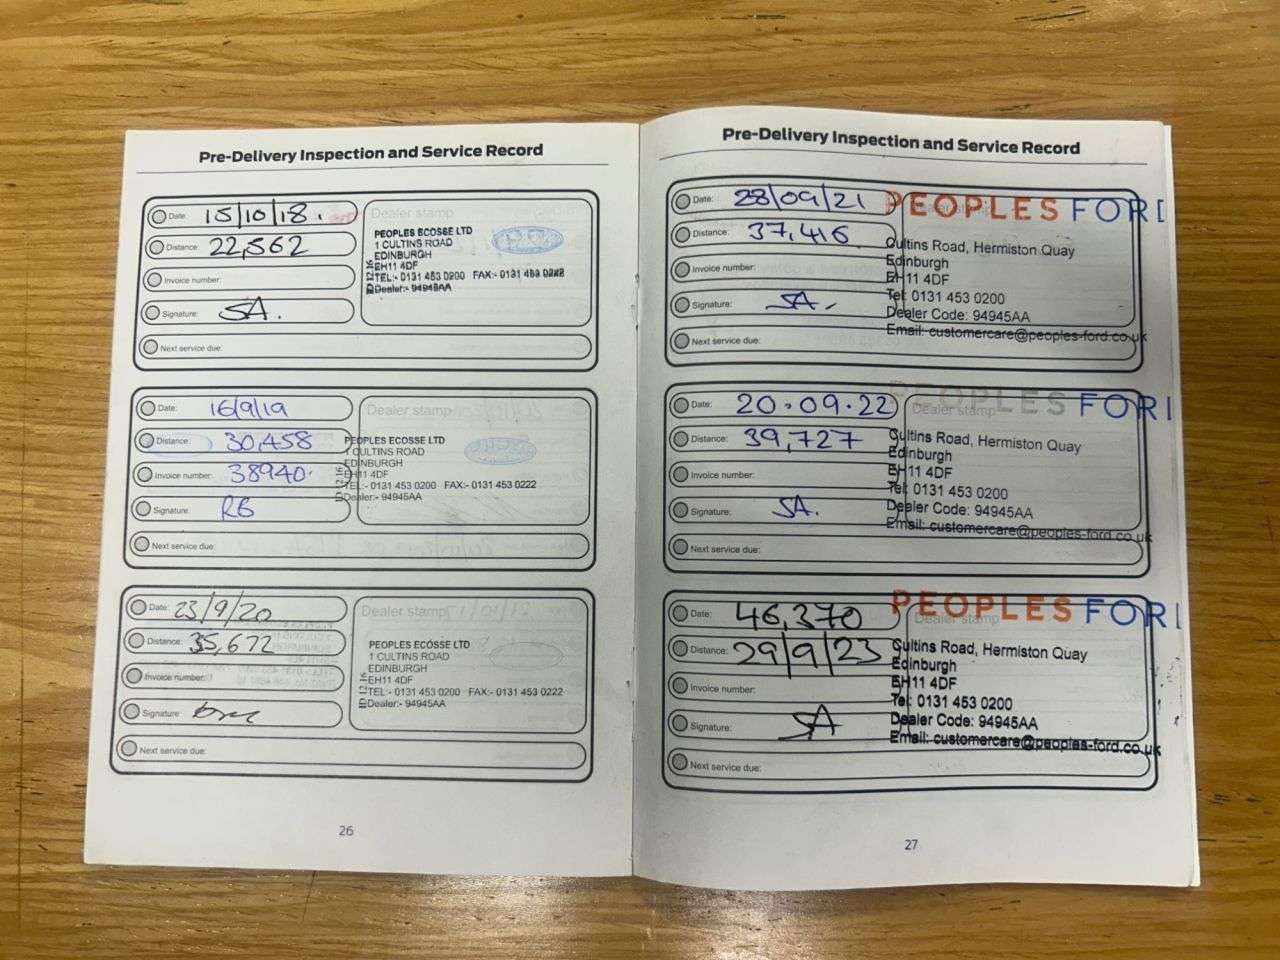 Pre-Delivery Inspection and Service Record
Date: 15/10/18.
Distance: 22,562
Invoice number:
Signature: SA.
Next service due:
Dealer stamp
PEOPLES ECOSSE LTD
1 CULTINS ROAD
EDINBURGH
EH11 4DF
TEL:- 0131 453 0200 FAX:- 0131 453 0222
Dealer:- 94945AA
Date: 16/9/19
Distance: 30,458
Invoice number: 38940.
Signature: RG
Next service due:
Dealer stamp
PEOPLES ECOSSE LTD
1 CULTINS ROAD
EDINBURGH
EH11 4DF
TEL:- 0131 453 0200 FAX:- 0131 453 0222
Dealer:- 94945AA
Date: 23/9/20
Distance: 35,672
Invoice number:
Signature:
Next service due:
Dealer stamp
PEOPLES ECOSSE LTD
1 CULTINS ROAD
EDINBURGH
EH11 4DF
TEL:- 0131 453 0200 FAX:- 0131 453 0222
Dealer:- 94945AA
26
Pre-Delivery Inspection and Service Record
Date: 28/09/21
Distance: 37,416
Invoice number:
Signature: SA.
Next service due:
PEOPLES FORD
Cultins Road, Hermiston Quay
Edinburgh
EH11 4DF
Tel: 0131 453 0200
Dealer Code: 94945AA
Email: customercare@peoples-ford.co.uk
Date: 20.09.22
Distance: 39,727
Invoice number:
Signature: SA.
Next service due:
PEOPLES FORD
Dealer stamp
Cultins Road, Hermiston Quay
Edinburgh
EH11 4DF
Tel: 0131 453 0200
Dealer Code: 94945AA
Email: customercare@peoples-ford.co.uk
Date: 46,370
Distance: 29/9/23
Invoice number:
Signature: SA
Next service due:
PEOPLES FORD
Dealer stamp
Cultins Road, Hermiston Quay
Edinburgh
EH11 4DF
Tel: 0131 453 0200
Dealer Code: 94945AA
Email: customercare@peoples-ford.co.uk
27